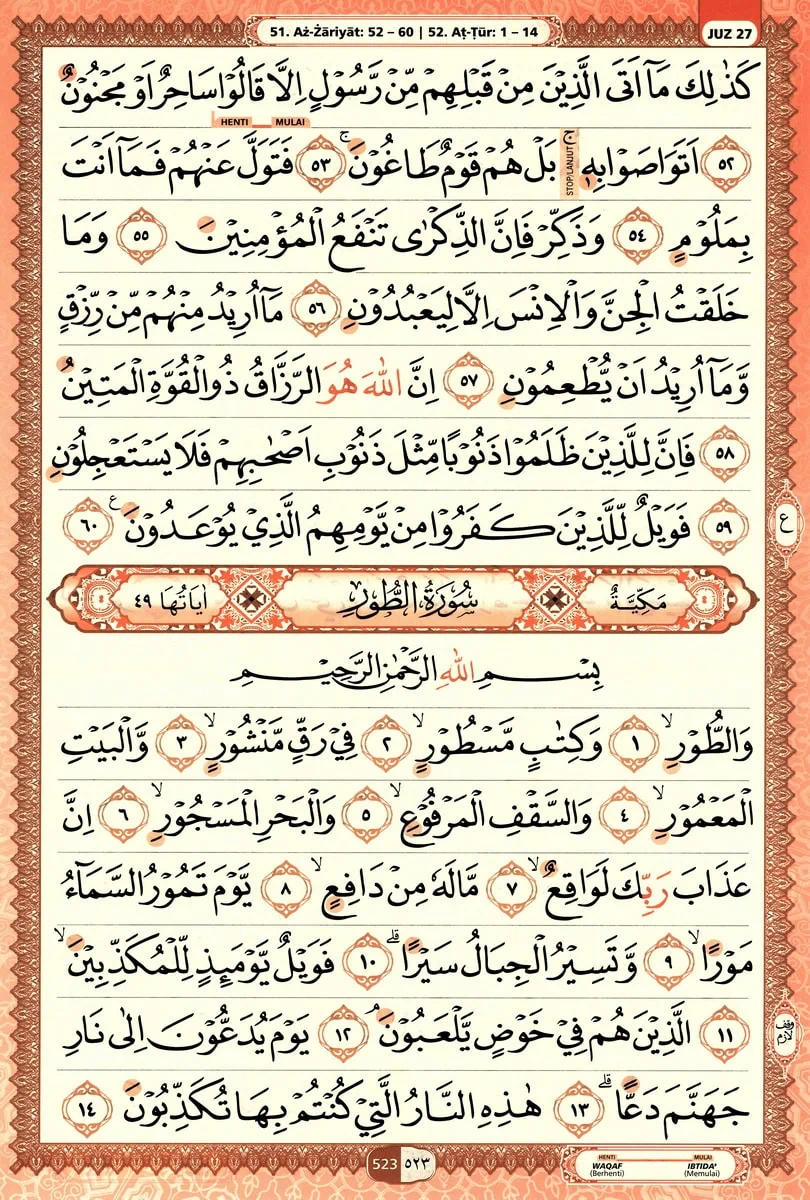 51. Aż-Żāriyāt: 52 – 60 | 52. Aṭ-Ṭūr: 1 – 14
JUZ 27
كَذٰلِكَ مَآ اَتَى الَّذِيْنَ مِنْ قَبْلِهِمْ مِّنْ رَّسُوْلٍ اِلَّا قَالُوْا سَاحِرٌ اَوْ مَجْنُوْنٌ
HENTI MULAI
٥٢ اَتَوَاصَوْا بِهٖ ج STOP/LANJUT بَلْ هُمْ قَوْمٌ طَاغُوْنَ ۚ ٥٣ فَتَوَلَّ عَنْهُمْ فَمَآ اَنْتَ
بِمَلُوْمٍ ٥٤ وَذَكِّرْ فَاِنَّ الذِّكْرٰى تَنْفَعُ الْمُؤْمِنِيْنَ ٥٥ وَمَا
خَلَقْتُ الْجِنَّ وَالْاِنْسَ اِلَّا لِيَعْبُدُوْنِ ٥٦ مَآ اُرِيْدُ مِنْهُمْ مِّنْ رِّزْقٍ
وَّمَآ اُرِيْدُ اَنْ يُّطْعِمُوْنِ ٥٧ اِنَّ اللّٰهَ هُوَ الرَّزَّاقُ ذُو الْقُوَّةِ الْمَتِيْنُ
٥٨ فَاِنَّ لِلَّذِيْنَ ظَلَمُوْا ذَنُوْبًا مِّثْلَ ذَنُوْبِ اَصْحٰبِهِمْ فَلَا يَسْتَعْجِلُوْنِ
٥٩ فَوَيْلٌ لِّلَّذِيْنَ كَفَرُوْا مِنْ يَّوْمِهِمُ الَّذِيْ يُوْعَدُوْنَ ࣖ ٦٠
ع
مَكِّيَّةٌ سُوْرَةُ الطُّوْرِ اٰيَاتُهَا ٤٩
بِسْمِ اللّٰهِ الرَّحْمٰنِ الرَّحِيْمِ
وَالطُّوْرِۙ ١ وَكِتٰبٍ مَّسْطُوْرٍۙ ٢ فِيْ رَقٍّ مَّنْشُوْرٍۙ ٣ وَّالْبَيْتِ
الْمَعْمُوْرِۙ ٤ وَالسَّقْفِ الْمَرْفُوْعِۙ ٥ وَالْبَحْرِ الْمَسْجُوْرِۙ ٦ اِنَّ
عَذَابَ رَبِّكَ لَوَاقِعٌۙ ٧ مَّا لَهٗ مِنْ دَافِعٍۙ ٨ يَّوْمَ تَمُوْرُ السَّمَاۤءُ
مَوْرًاۙ ٩ وَّتَسِيْرُ الْجِبَالُ سَيْرًاۗ ١٠ فَوَيْلٌ يَّوْمَىِٕذٍ لِّلْمُكَذِّبِيْنَۙ
١١ الَّذِيْنَ هُمْ فِيْ خَوْضٍ يَّلْعَبُوْنَۘ ١٢ يَوْمَ يُدَعُّوْنَ اِلٰى نَارِ
وقف لازم
جَهَنَّمَ دَعًّاۗ ١٣ هٰذِهِ النَّارُ الَّتِيْ كُنْتُمْ بِهَا تُكَذِّبُوْنَ ١٤
523 ٥٢٣
HENTI MULAI
WAQAF IBTIDA'
(Berhenti) (Memulai)